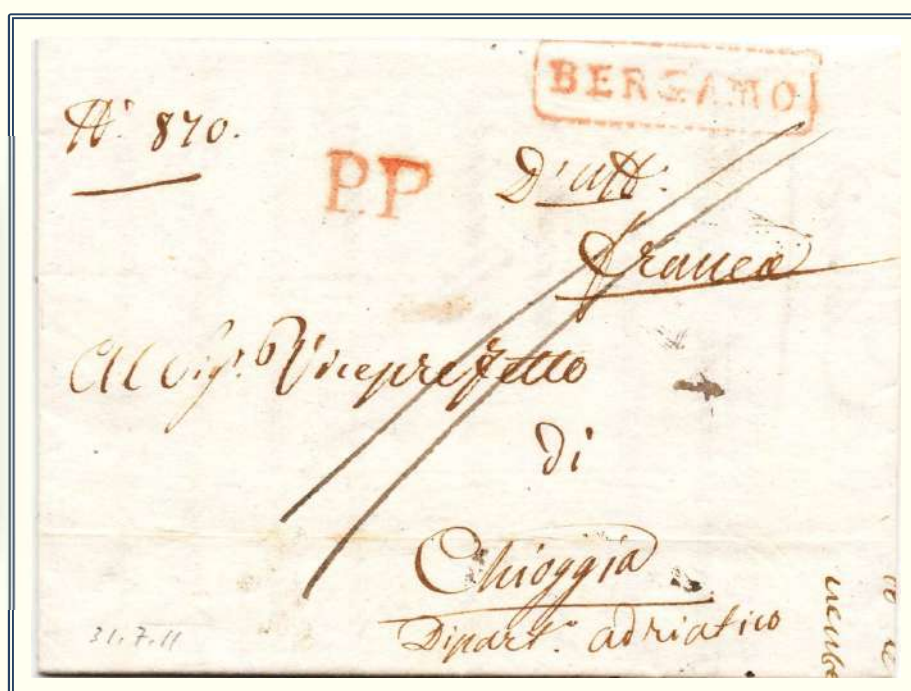 BERGAMO
N.º 870.
P.P
D'Uff.º
franca
Al Sig.r Viceprefetto
di
Chioggia
Dipart.º adriatico
31.7.11